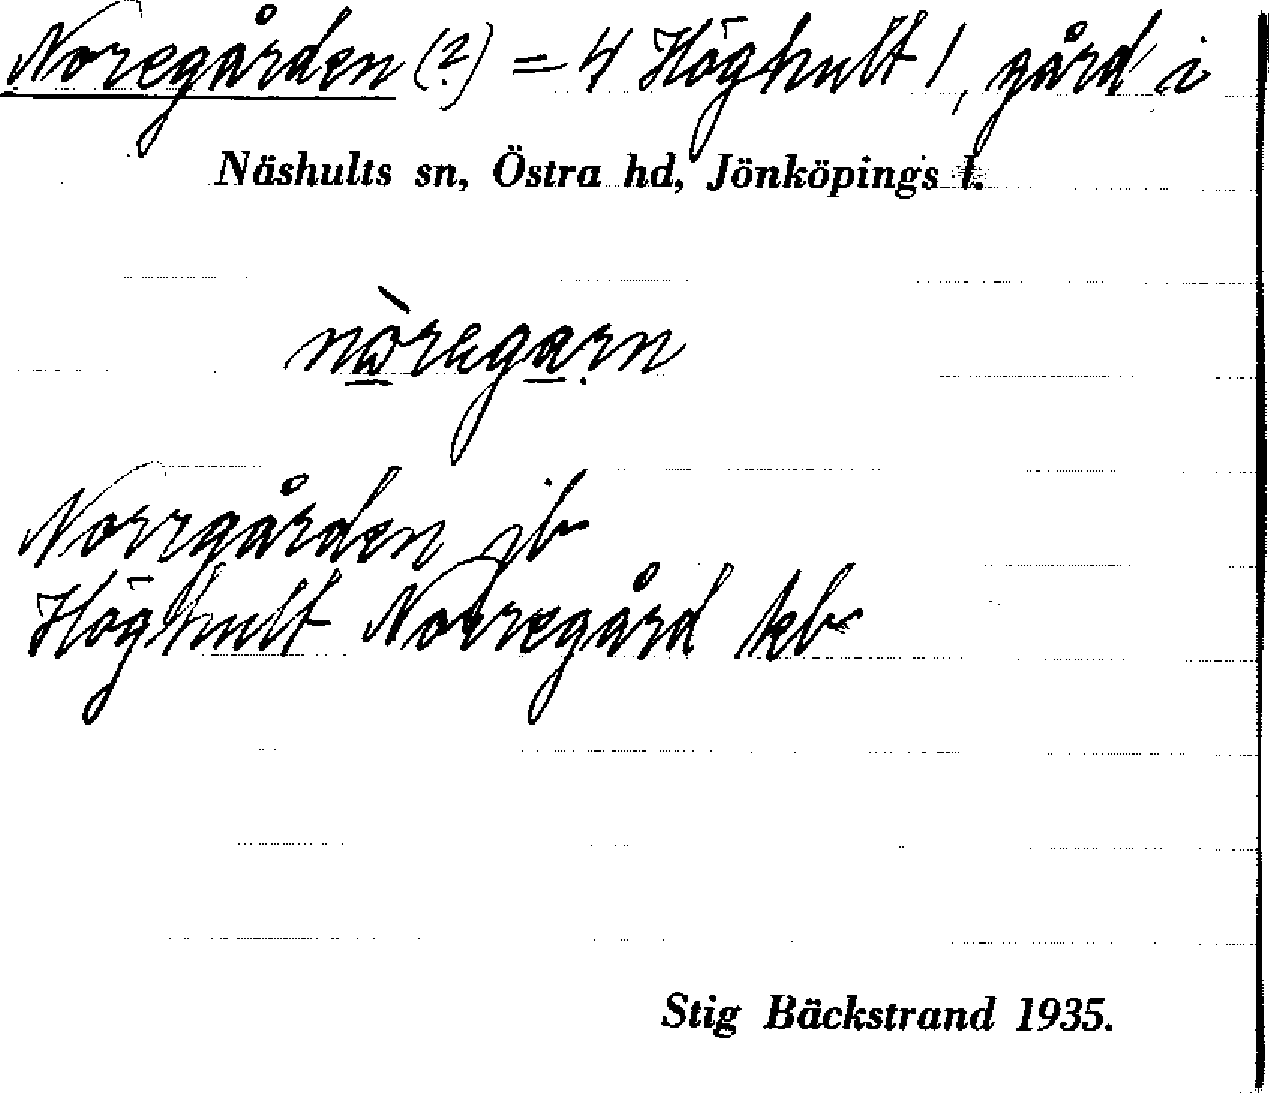 Noregården (?) = 4 Höghult 1, gård i
Näshults sn, Östra hd, Jönköpings l.
nòregarn
Norrgården jb
Höghult Norregård kb
Stig Bäckstrand 1935.